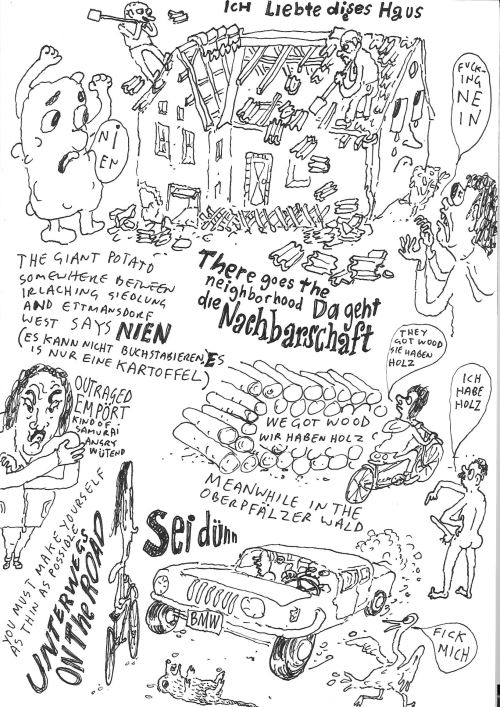 ICH Liebte dises Haus
FUCK-
ING
NE
IN
NI
EN
THE GIANT POTATO
SOMEWHERE BETWEEN
IRLACHING SIEDLUNG
AND ETTMANSDORF
WEST SAYS NIEN
(ES KANN NICHT BUCHSTABIEREN, ES
IS NUR EINE KARTOFFEL)
There goes the
neighborhood Da geht
die Nachbarschaft
THEY
GOT WOOD
SIE HABEN
HOLZ
ICH
HABE
HOLZ
OUTRAGED
EMPÖRT
KIND OF
SAMURAI
ANGRY
WÜTEND
WE GOT WOOD
WIR HABEN HOLZ
MEANWHILE IN THE
OBERPFÄLZER WALD
YOU MUST MAKE YOURSELF
AS THIN AS POSSIBLE
UNTERWEGS
ON THE ROAD
Sei dünn
BMW
FICK
MICH